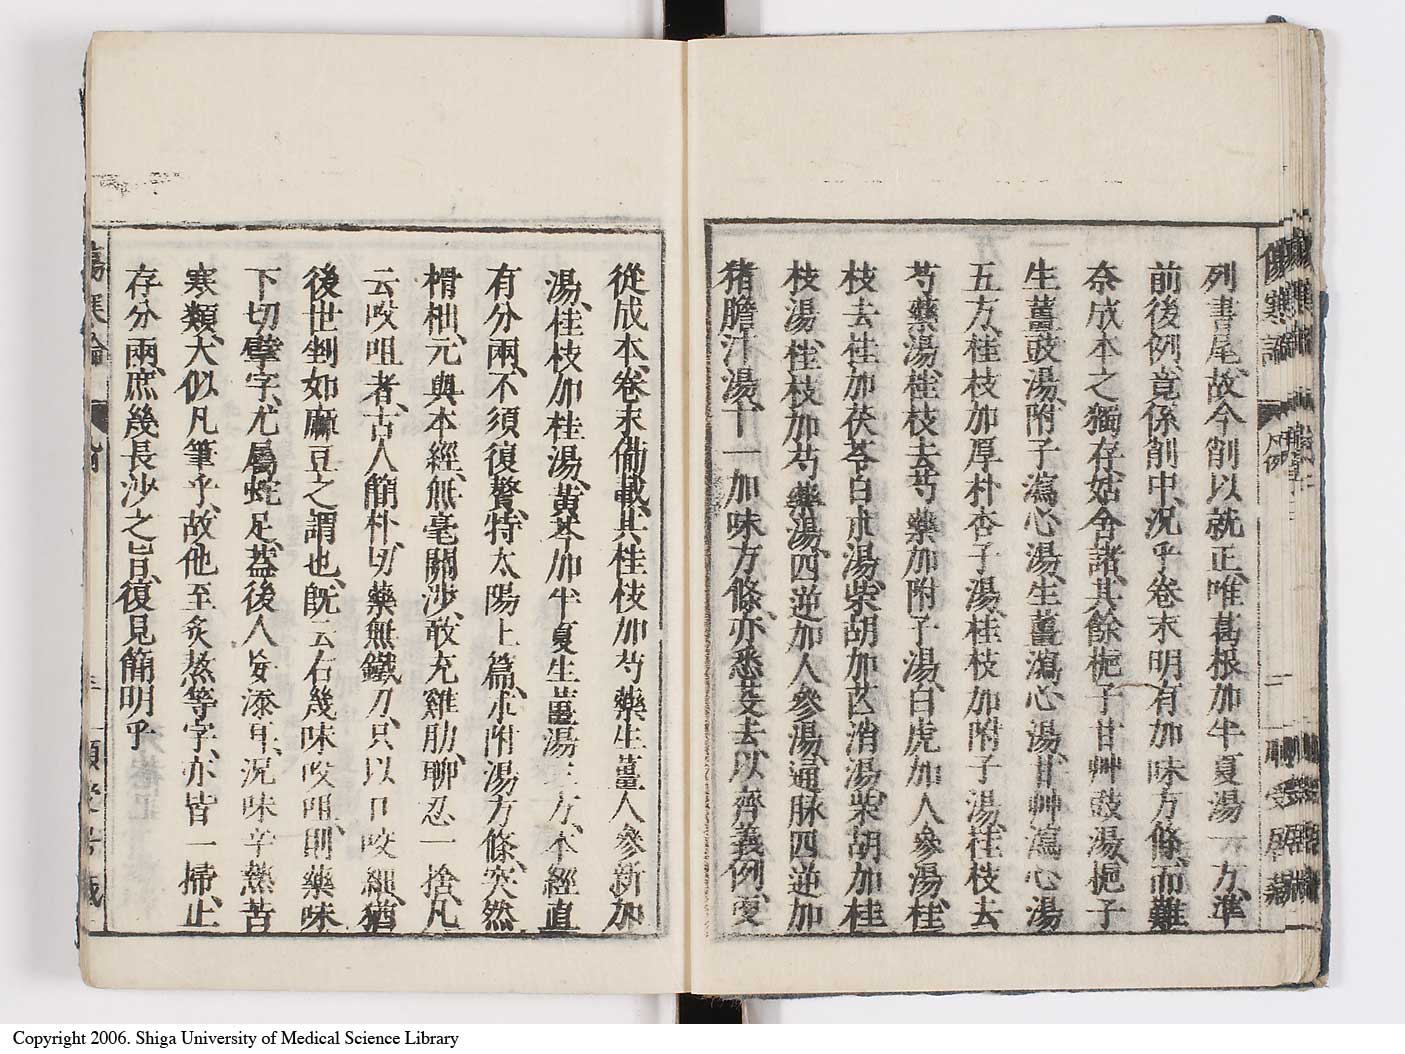 列書尾、故今削以就正、唯葛根加半夏湯一方、準
前後例、竟係削中、況乎卷末明有加味方條、而難
奈成本之獨存、姑舍諸、其餘梔子甘艸豉湯、梔子
生薑豉湯、附子瀉心湯、生薑瀉心湯、甘艸瀉心湯
五方、桂枝加厚朴杏子湯、桂枝加附子湯、桂枝去
芍藥湯、桂枝去芍藥加附子湯、白虎加人參湯、桂
枝去桂加茯苓白朮湯、柴胡加芒消湯、柴胡加桂
枝湯、桂枝加芍藥湯、四逆加人參湯、通脉四逆加
猪膽汁湯、十一加味方條、亦悉芟去、以齊義例、更
從成本、卷末備載其桂枝加芍藥生薑人參新加
湯、桂枝加桂湯、黃芩加半夏生薑湯三方、本經直
有分兩、不須復贅、特太陽上篇、朮附湯方條、突然
榾柮、元與本經、無毫關涉、敢充雞肋、聊忍一捨、凡
云㕮咀者、古人簡朴、切藥無鐵刀、只以口㕮、猶
後世剉如麻豆之謂也、旣云右幾味㕮咀、則藥味
下切擘字、尤屬蛇足、葢後人妄添耳、況味辛熱苦
寒類、大似凡筆乎、故他至炙熬等字、亦皆一掃、止
存分兩、庶幾長沙之旨、復見簡明乎
傷寒論
凡例
二